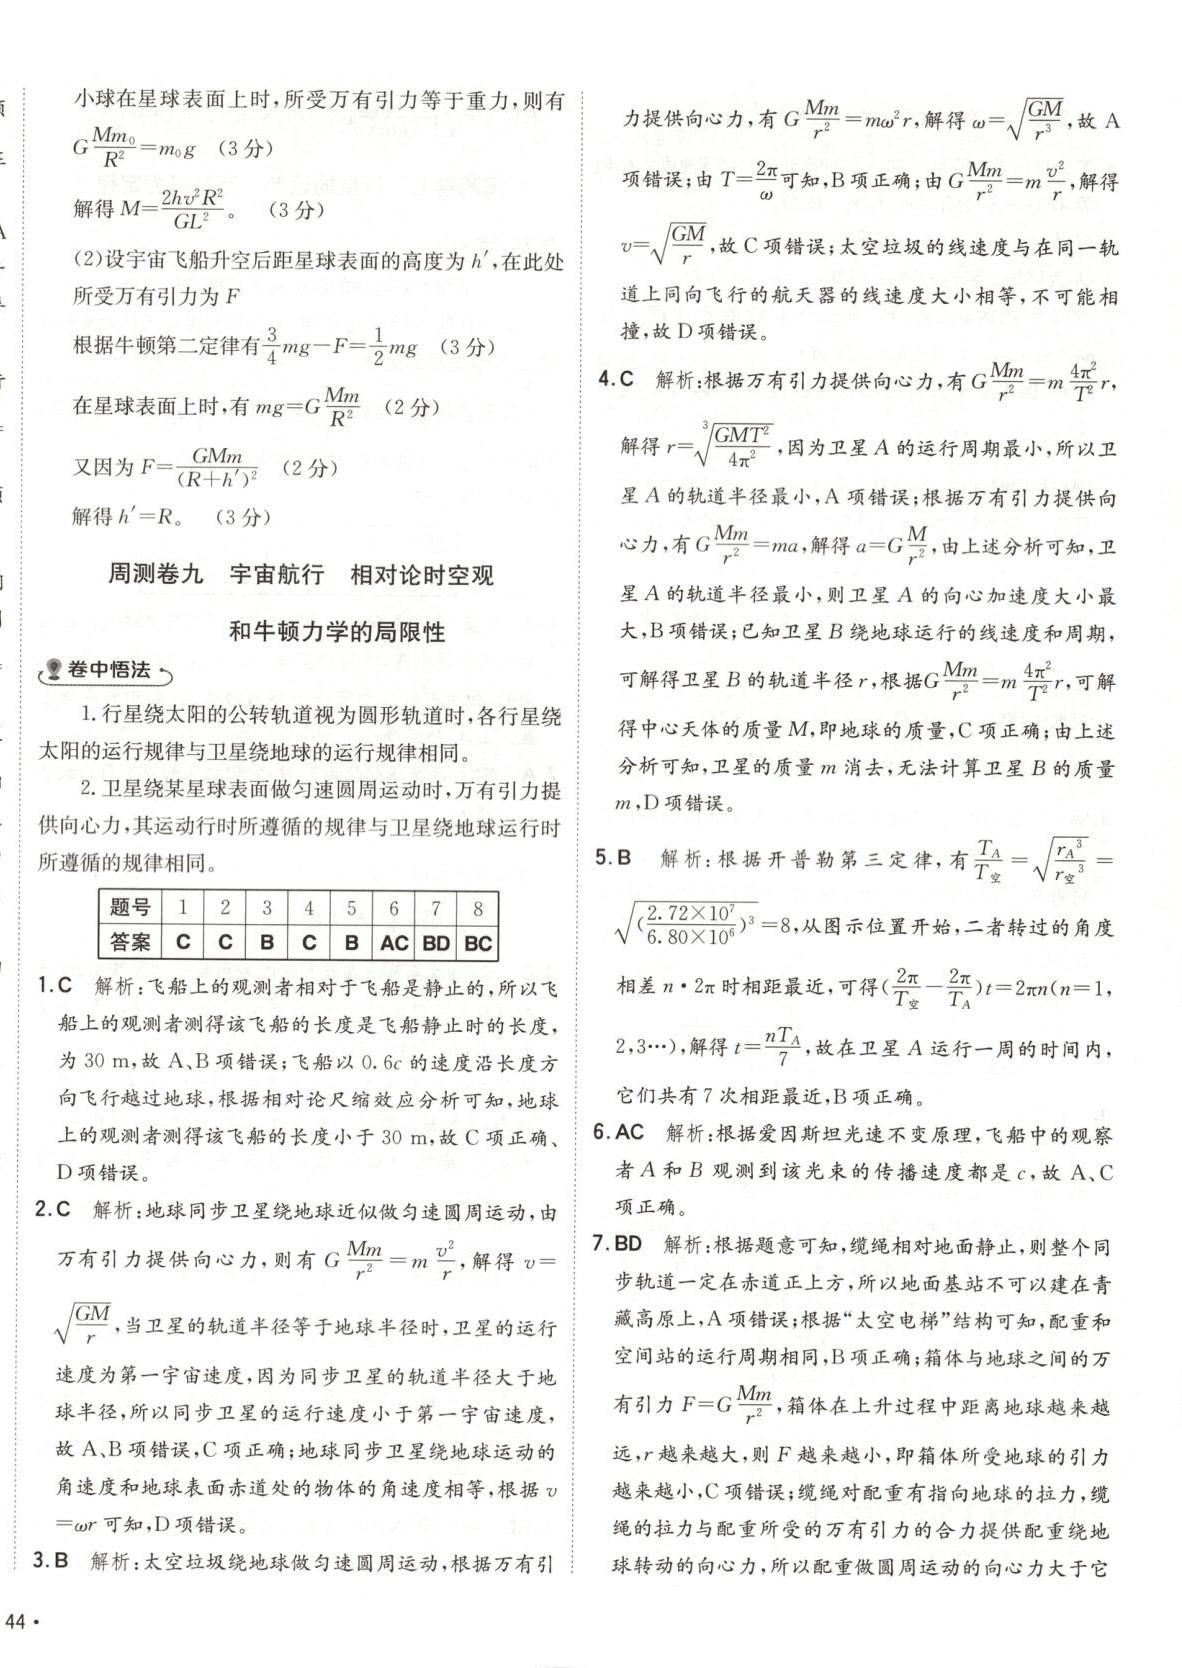 小球在星球表面上时,所受万有引力等于重力,则有
G\frac{Mm₀}{R²}=m₀g （3分）
解得 M=\frac{2hv²R²}{GL²}。（3分）
(2)设宇宙飞船升空后距星球表面的高度为 h′,在此处
所受万有引力为 F
根据牛顿第二定律有\frac{3}{4}mg−F=\frac{1}{2}mg （3分）
在星球表面上时,有 mg=G\frac{Mm}{R²} （2分）
又因为 F=\frac{GMm}{(R+h′)²} （2分）
解得 h′=R。（3分）
周测卷九 宇宙航行 相对论时空观
和牛顿力学的局限性
卷中悟法
1. 行星绕太阳的公转轨道视为圆形轨道时,各行星绕
太阳的运行规律与卫星绕地球的运行规律相同。
2. 卫星绕某星球表面做匀速圆周运动时,万有引力提
供向心力,其运动行时所遵循的规律与卫星绕地球运行时
所遵循的规律相同。
题号 1 2 3 4 5 6 7 8
答案 C C B C B AC BD BC
1. C 解析:飞船上的观测者相对于飞船是静止的,所以飞
船上的观测者测得该飞船的长度是飞船静止时的长度,
为 30 m,故 A、B 项错误;飞船以 0.6c 的速度沿长度方
向飞行越过地球,根据相对论尺缩效应分析可知,地球
上的观测者测得该飞船的长度小于 30 m,故 C 项正确、
D 项错误。
2. C 解析:地球同步卫星绕地球近似做匀速圆周运动,由
万有引力提供向心力,则有 G\frac{Mm}{r²}=m\frac{v²}{r},解得 v=
\sqrt{\frac{GM}{r}},当卫星的轨道半径等于地球半径时,卫星的运行
速度为第一宇宙速度,因为同步卫星的轨道半径大于地
球半径,所以同步卫星的运行速度小于第一宇宙速度,
故 A、B 项错误,C 项正确;地球同步卫星绕地球运动的
角速度和地球表面赤道处的物体的角速度相等,根据 v
=ωr 可知,D 项错误。
3. B 解析:太空垃圾绕地球做匀速圆周运动,根据万有引
44 •
力提供向心力,有 G\frac{Mm}{r²}=mω²r,解得 ω=\sqrt{\frac{GM}{r³}},故 A
项错误;由 T=\frac{2π}{ω}可知,B 项正确;由 G\frac{Mm}{r²}=m\frac{v²}{r},解得
v=\sqrt{\frac{GM}{r}},故 C 项错误;太空垃圾的线速度与在同一轨
道上同向飞行的航天器的线速度大小相等,不可能相
撞,故 D 项错误。
4. C 解析:根据万有引力提供向心力,有 G\frac{Mm}{r²}=m\frac{4π²}{T²}r,
解得 r=\sqrt[3]{\frac{GMT²}{4π²}},因为卫星 A 的运行周期最小,所以卫
星 A 的轨道半径最小,A 项错误;根据万有引力提供向
心力,有 G\frac{Mm}{r²}=ma,解得 a=G\frac{M}{r²},由上述分析可知,卫
星 A 的轨道半径最小,则卫星 A 的向心加速度大小最
大,B 项错误;已知卫星 B 绕地球运行的线速度和周期,
可解得卫星 B 的轨道半径 r,根据G\frac{Mm}{r²}=m\frac{4π²}{T²}r,可解
得中心天体的质量 M,即地球的质量,C 项正确;由上述
分析可知,卫星的质量 m 消去,无法计算卫星 B 的质量
m,D 项错误。
5. B 解析:根据开普勒第三定律,有\frac{T_A}{T_空}=\sqrt{\frac{r_A³}{r_空³}}=
\sqrt{(\frac{2.72×10⁷}{6.80×10⁶})³}=8,从图示位置开始,二者转过的角度
相差 n·2π 时相距最近,可得(\frac{2π}{T_空}−\frac{2π}{T_A})t=2πn(n=1,
2,3…),解得 t=\frac{nT_A}{7},故在卫星 A 运行一周的时间内,
它们共有 7 次相距最近,B 项正确。
6. AC 解析:根据爱因斯坦光速不变原理,飞船中的观察
者 A 和 B 观测到该光束的传播速度都是 c,故 A、C
项正确。
7. BD 解析:根据题意可知,缆绳相对地面静止,则整个同
步轨道一定在赤道正上方,所以地面基站不可以建在青
藏高原上,A 项错误;根据“太空电梯”结构可知,配重和
空间站的运行周期相同,B 项正确;箱体与地球之间的万
有引力 F=G\frac{Mm}{r²},箱体在上升过程中距离地球越来越
远,r 越来越大,则 F 越来越小,即箱体所受地球的引力
越来越小,C 项错误;缆绳对配重有指向地球的拉力,缆
绳的拉力与配重所受的万有引力的合力提供配重绕地
球转动的向心力,所以配重做圆周运动的向心力大于它